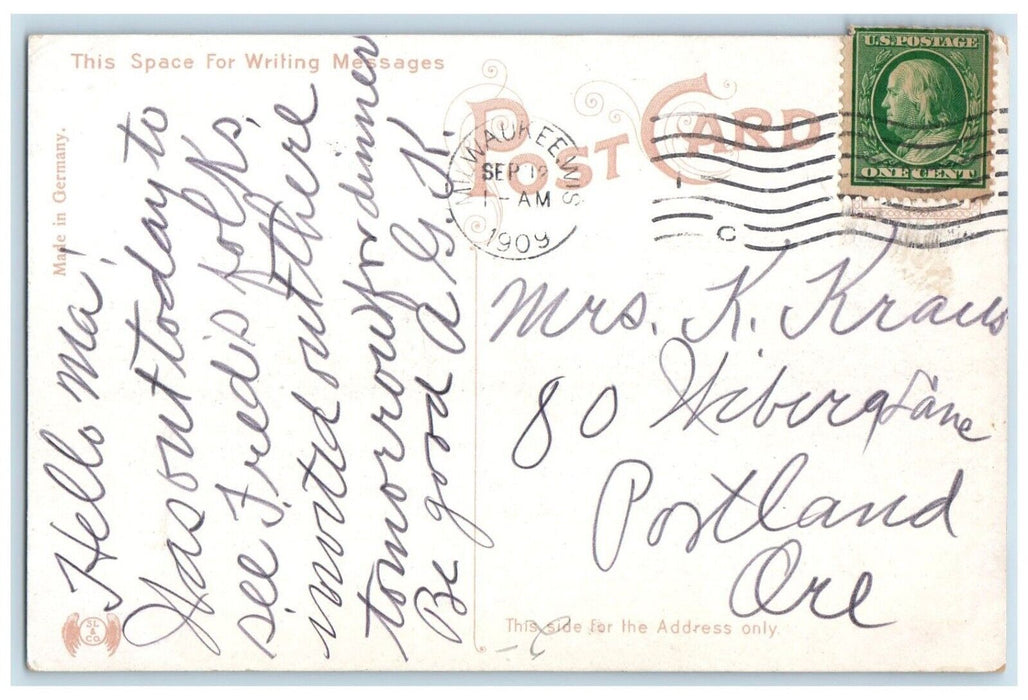 This Space For Writing Messages
POST CARD
Made in Germany.
U.S. POSTAGE
ONE CENT
MILWAUKEE, WIS
SEP 12
1 - AM
1909
Hello Ma,
Was out today to
see Fred's folks,
invited out there
tomorrow for dinner
Be good A. G. K.
Mrs. K. Kraus
80 Wiberg Lane
Portland
Ore
SL
& CO
This side for the Address only.